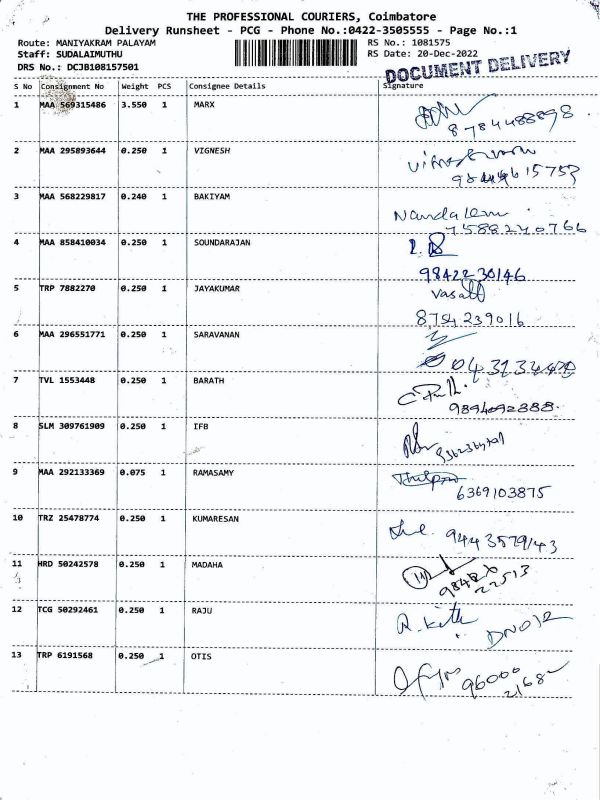 THE PROFESSIONAL COURIERS, Coimbatore
Delivery Runsheet - PCG - Phone No.:0422-3505555 - Page No.:1
Route: MANIYAKRAM PALAYAM RS No.: 1081575
Staff: SUDALAIMUTHU RS Date: 20-Dec-2022
DRS No.: DCJB108157501
DOCUMENT DELIVERY
S No Consignment No Weight PCS Consignee Details Signature
1 MAA 569315486 3.550 1 MARX
8784488898
2 MAA 295893644 0.250 1 VIGNESH
3 MAA 568229817 0.240 1 BAKIYAM
7588240766
4 MAA 858410034 0.250 1 SOUNDARAJAN
9842230146
5 TRP 7882270 0.250 1 JAYAKUMAR
8754239016
6 MAA 296551771 0.250 1 SARAVANAN
7 TVL 1553448 0.250 1 BARATH
9894092888
8 SLM 309761909 0.250 1 IFB
9 MAA 292133369 0.075 1 RAMASAMY
6369103875
10 TRZ 25478774 0.250 1 KUMARESAN
9443579143
11 HRD 50242578 0.250 1 MADAHA
22513
12 TCG 50292461 0.250 1 RAJU
13 TRP 6191568 0.250 1 OTIS
96000